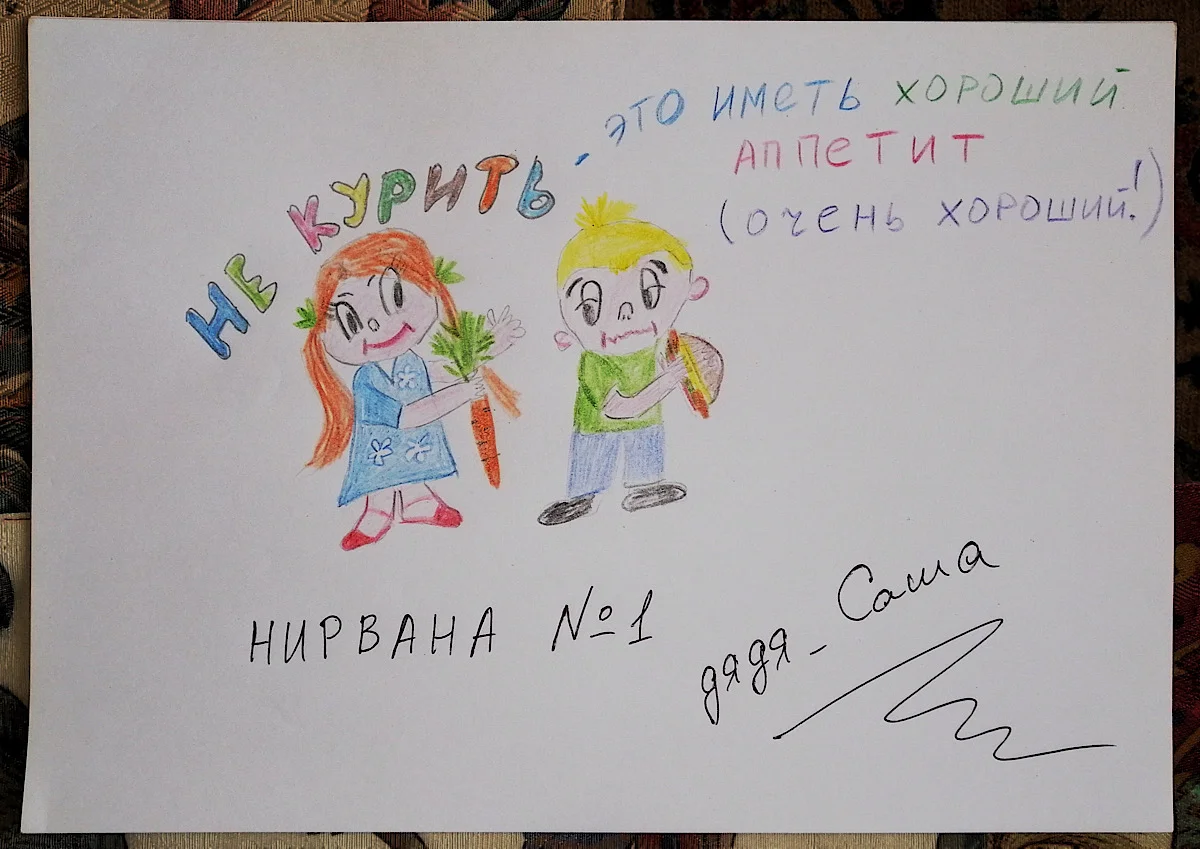 НЕ КУРИТЬ - ЭТО ИМЕТЬ ХОРОШИЙ
АППЕТИТ
(ОЧЕНЬ ХОРОШИЙ!)
НИРВАНА №1
дядя - Саша